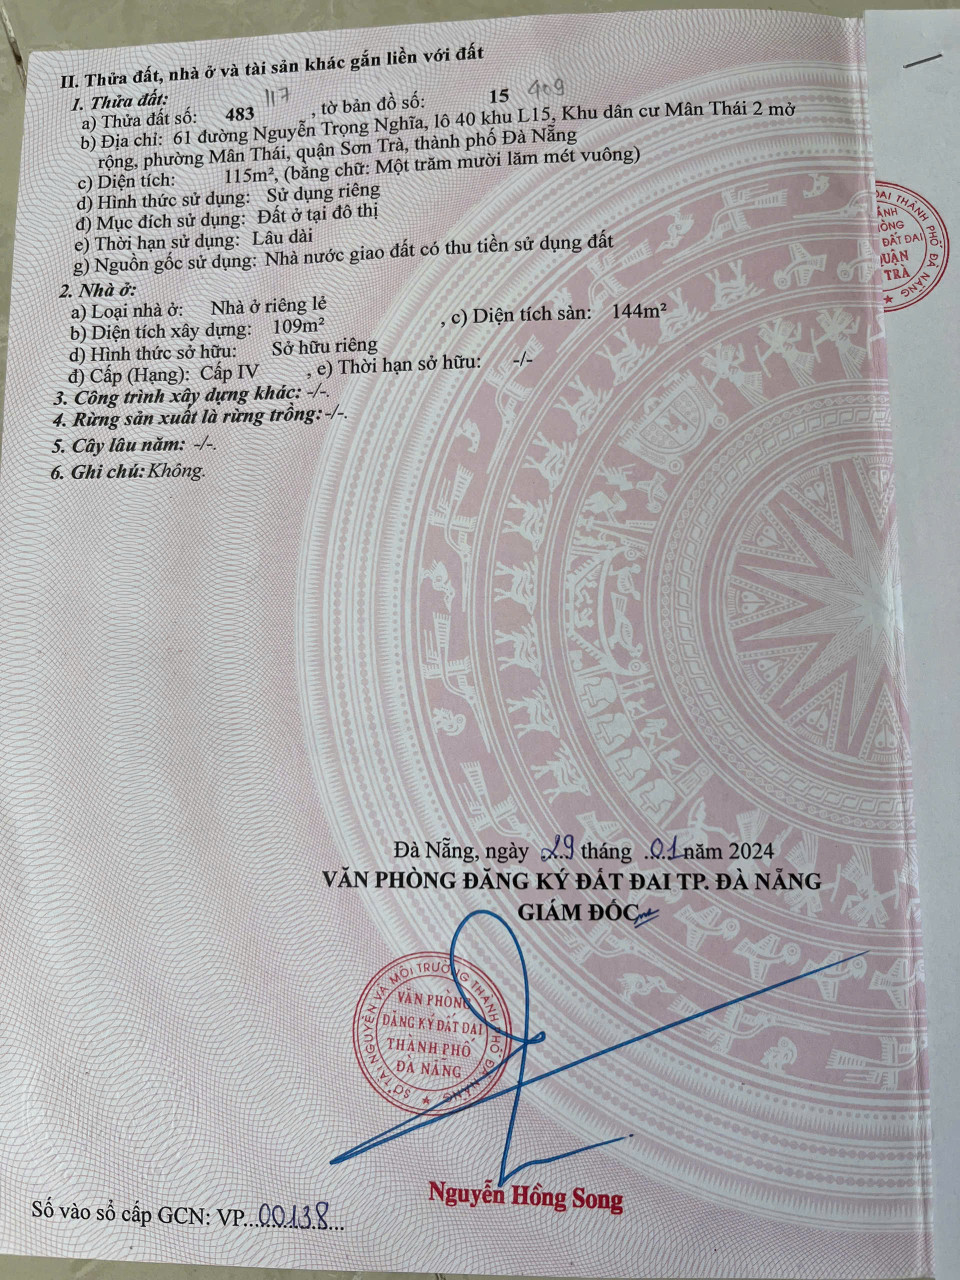 II. Thửa đất, nhà ở và tài sản khác gắn liền với đất
1. Thửa đất:
117
409
a) Thửa đất số: 483 , tờ bản đồ số: 15
b) Địa chỉ: 61 đường Nguyễn Trọng Nghĩa, lô 40 khu L15, Khu dân cư Mân Thái 2 mở
rộng, phường Mân Thái, quận Sơn Trà, thành phố Đà Nẵng
c) Diện tích: 115m², (bằng chữ: Một trăm mười lăm mét vuông)
d) Hình thức sử dụng: Sử dụng riêng
đ) Mục đích sử dụng: Đất ở tại đô thị
e) Thời hạn sử dụng: Lâu dài
g) Nguồn gốc sử dụng: Nhà nước giao đất có thu tiền sử dụng đất
2. Nhà ở:
a) Loại nhà ở: Nhà ở riêng lẻ
b) Diện tích xây dựng: 109m² , c) Diện tích sàn: 144m²
d) Hình thức sở hữu: Sở hữu riêng
đ) Cấp (Hạng): Cấp IV , e) Thời hạn sở hữu: -/-
3. Công trình xây dựng khác: -/-.
4. Rừng sản xuất là rừng trồng: -/-.
5. Cây lâu năm: -/-.
6. Ghi chú: Không.
ĐẤT ĐAI
QUẬN
TRÀ
ĐAI THÀNH PHỐ ĐÀ NẴNG
Đà Nẵng, ngày 29 tháng 01 năm 2024
VĂN PHÒNG ĐĂNG KÝ ĐẤT ĐAI TP. ĐÀ NẴNG
GIÁM ĐỐC
SỞ TÀI NGUYÊN VÀ MÔI TRƯỜNG THÀNH PHỐ ĐÀ NẴNG
VĂN PHÒNG
ĐĂNG KÝ ĐẤT ĐAI
THÀNH PHỐ
ĐÀ NẴNG
Nguyễn Hồng Song
Số vào sổ cấp GCN: VP...00138...